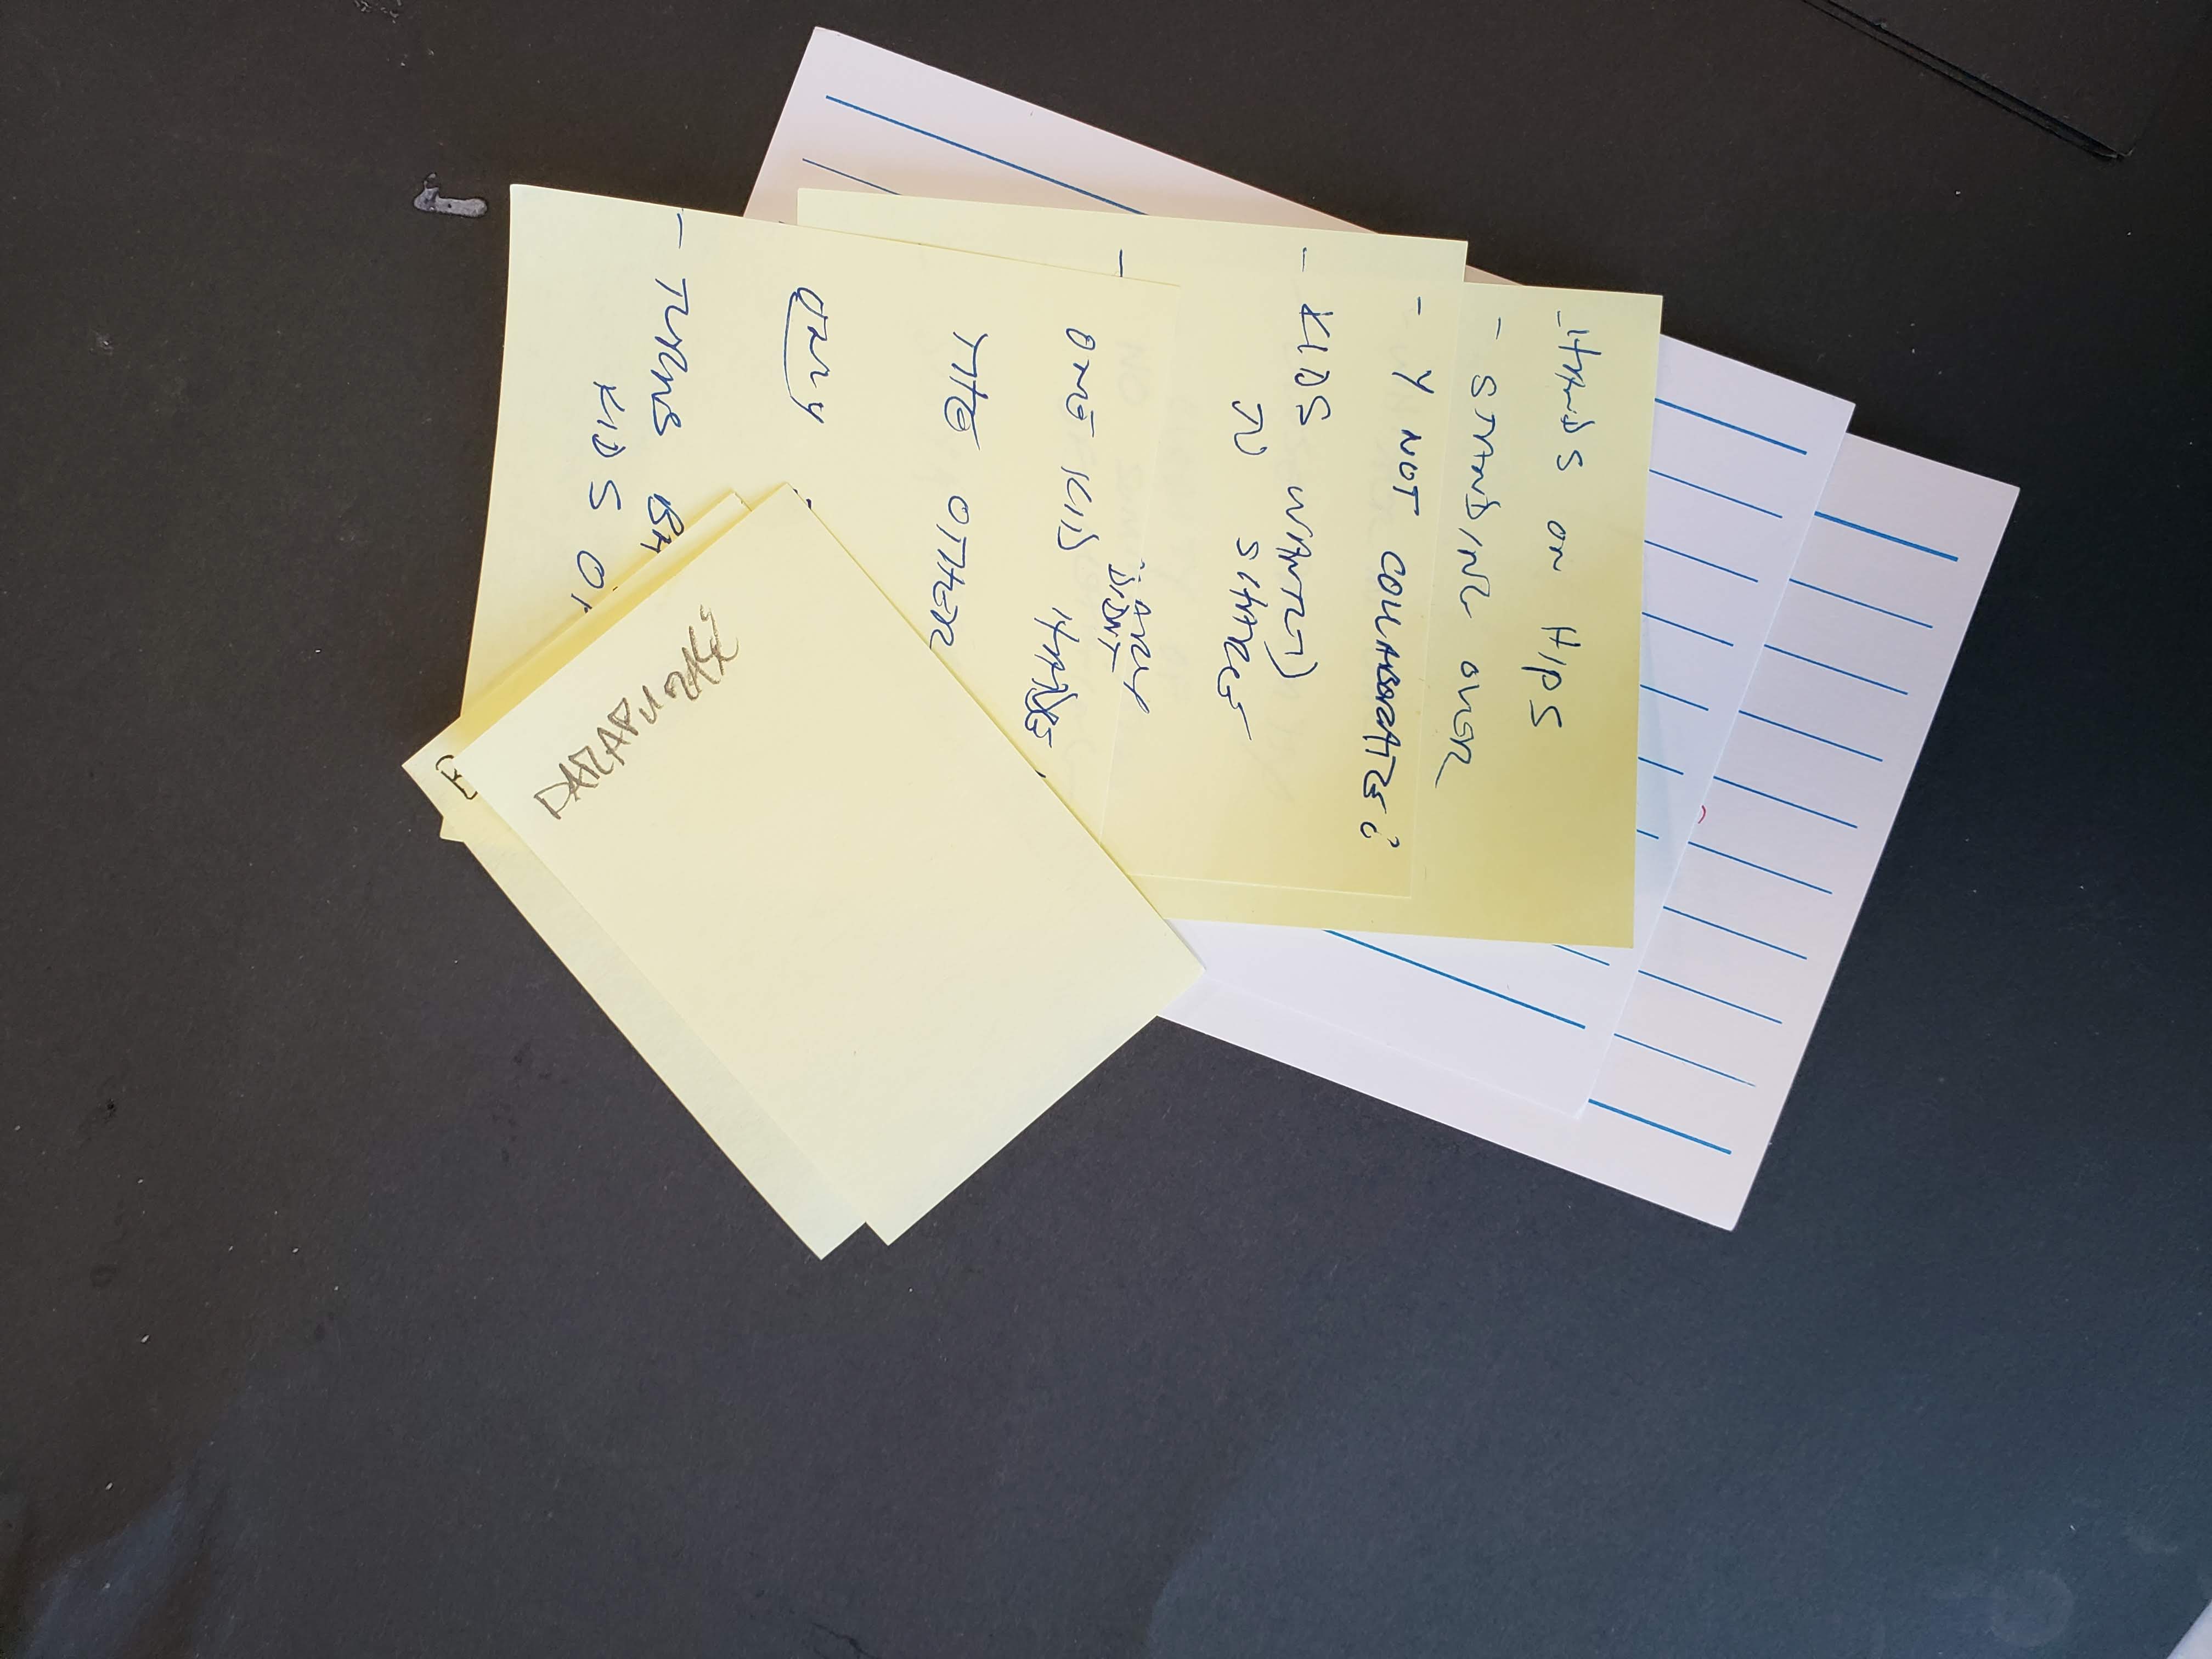 - HANDS ON HIPS
- STANDING OVER
- Y NOT COLLABORATE?
- KIDS WANTED
TO SHARE
-
DIDNT
ONE KID HAVE
THE OTHER
ONLY
- TURNS BA
KIDS O